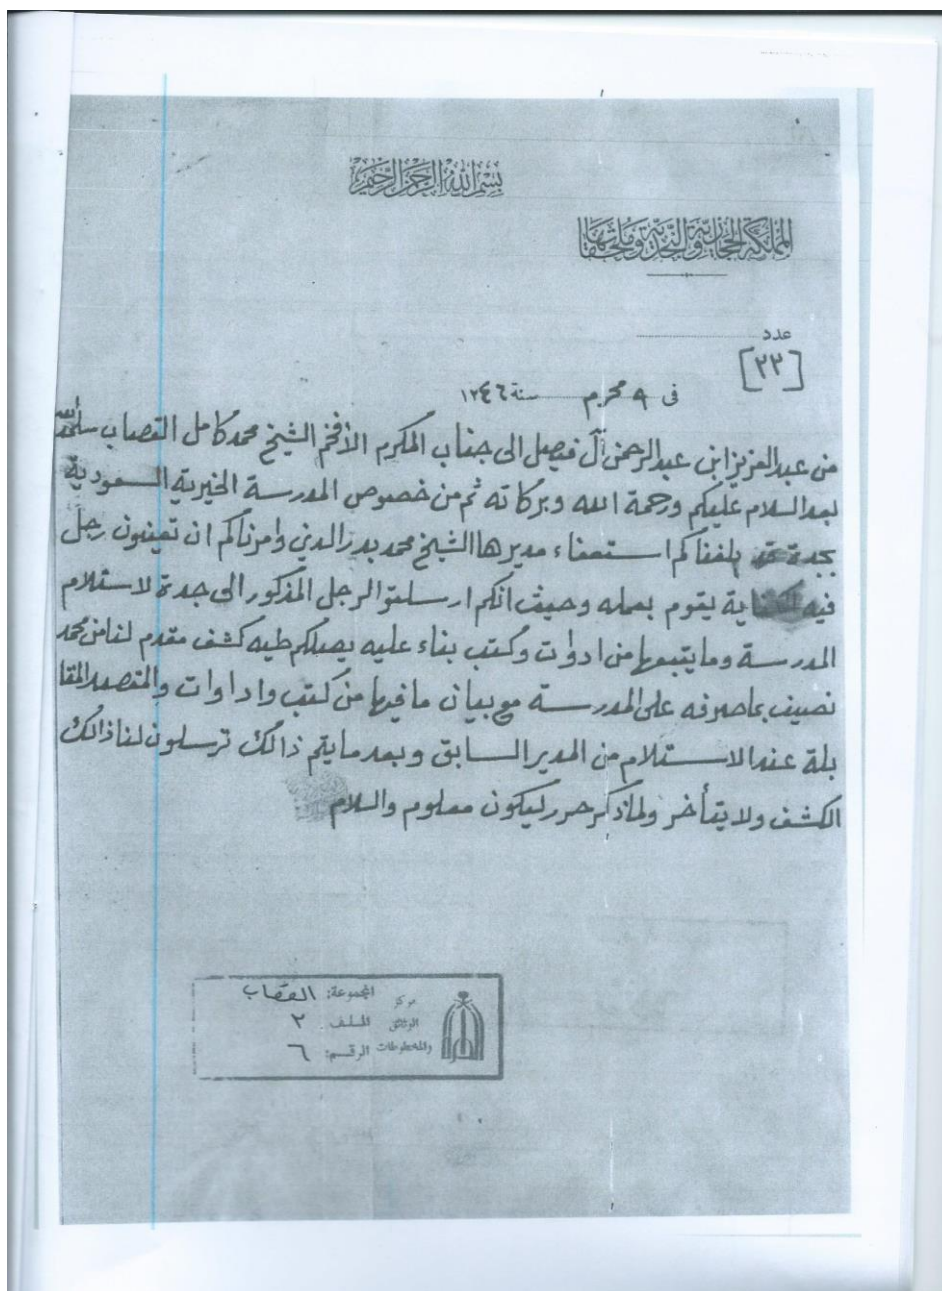 بسم الله الرحمن الرحيم
المملكة الحجازية والنجدية وملحقاتها
عدد
[٢٢]
فى ٩ محرم سنة ١٣٤٦
من عبد العزيز ابن عبد الرحمن آل فيصل الى جناب المكرم الأفخم الشيخ محمد كامل القصاب سلمه الله
بعد السلام عليكم ورحمة الله وبركاته ثم من خصوص المدرسة الخيرية السعودية
بجدة قد بلغناكم استعفاء مديرها الشيخ محمد بدر الدين وامرناكم ان تعينون رجل
فيه الكفاية يقوم بعمله وحيث انكم ارسلتو الرجل المذكور الى جدة لاستلام
المدرسة وما يتبعها من ادوات وكتب بناء عليه يصلكم طيه كشف مقدم لنا من محمد
نصيف بما صرفه على المدرسة مع بيان ما فيها من كتب واداوات والمقصد المقا
بلة عند الاستلام من المدير السابق وبعد ما يتم ذالك ترسلون لنا ذالك
الكشف ولا يتأخر ولما ذكر حرر ليكون معلوم والسلام
مركز الوثائق والمخطوطات
المجموعة: القصاب
الملف ٢
الرقم: ٦